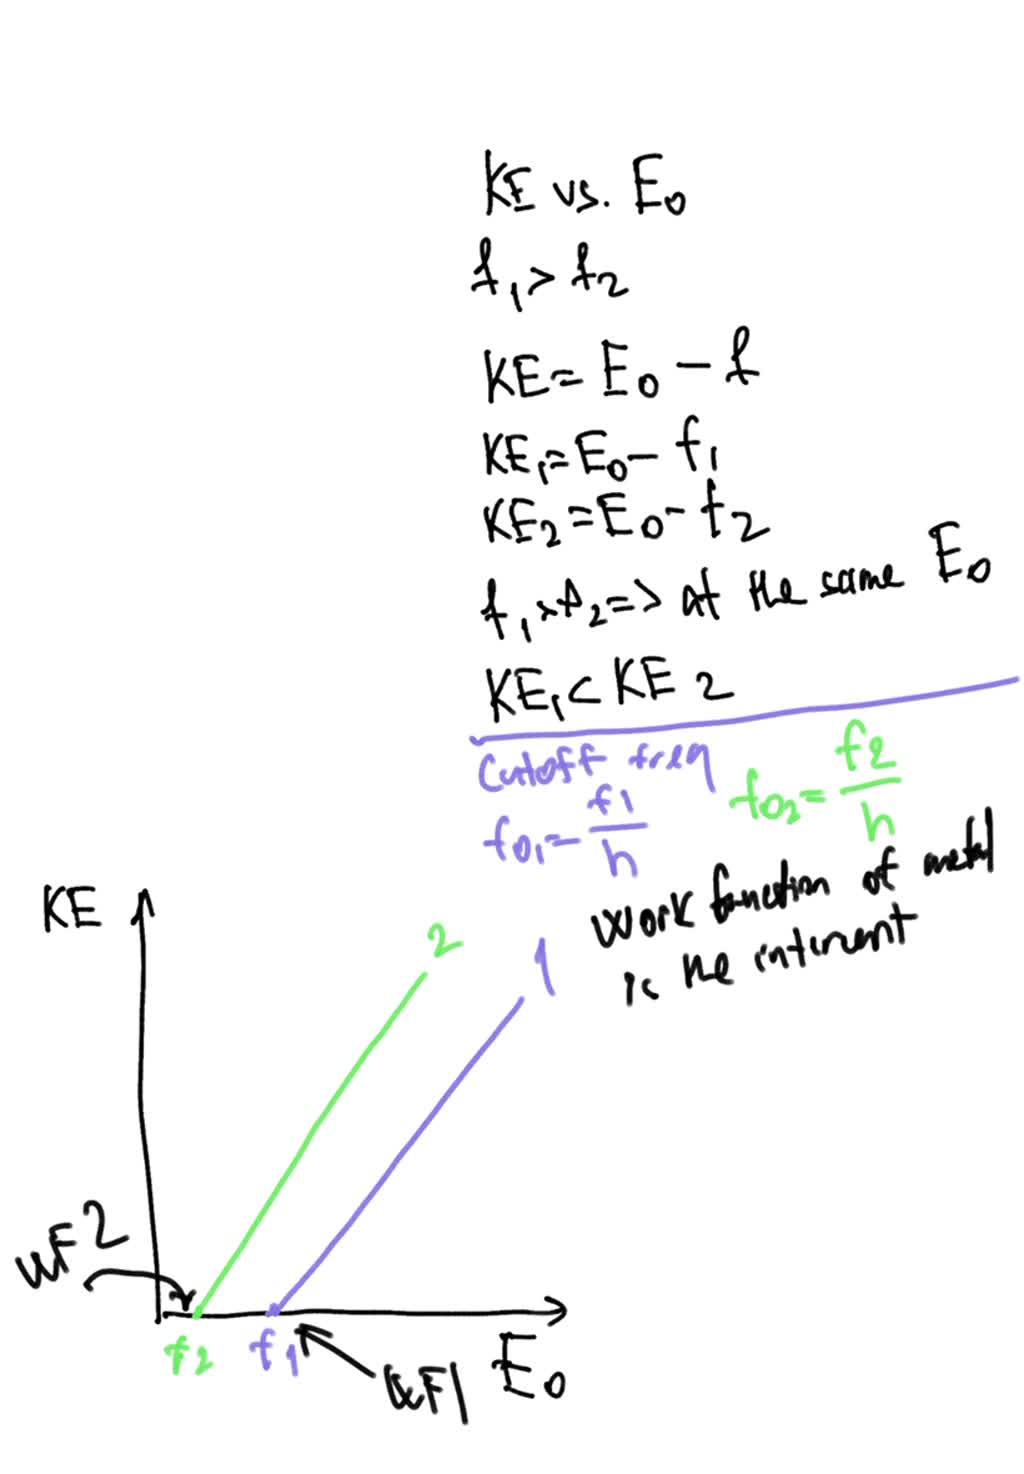 KE vs. E₀
f₁ > f₂
KE = E₀ - f
KE₁ = E₀ - f₁
KE₂ = E₀ - f₂
f₁ > f₂ => at the same E₀
KE₁ < KE 2
Cutoff freq
f₀₁ = f₁/h
f₀₂ = f₂/h
work function of metal
is the
KE
2
1
WF2
f₂
f₁
WF1
E₀